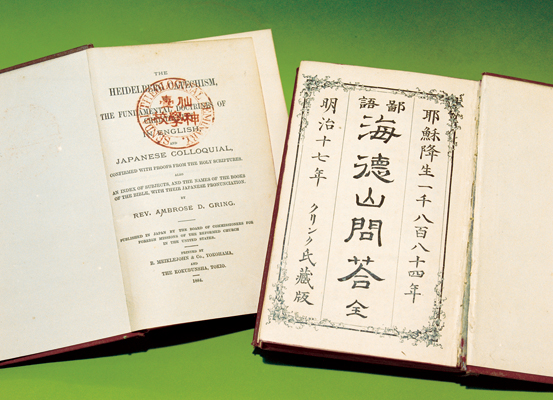 THE
HEIDELBERG CATECHISM,
THE FUNDAMENTAL DOCTRINES OF
ENGLISH
AND
JAPANESE COLLOQUIAL,
CONFIRMED WITH PROOFS FROM THE HOLY SCRIPTURES.
ALSO
AN INDEX OF SUBJECTS, AND THE NAMES OF THE BOOKS
OF THE BIBLE, WITH THEIR JAPANESE PRONUNCIATION.
BY
REV. AMBROSE D. GRING.
PUBLISHED IN JAPAN BY THE BOARD OF COMMISSIONERS FOR
FOREIGN MISSIONS OF THE REFORMED CHURCH
IN THE UNITED STATES.
PRINTED BY
R. MEIKLEJOHN & CO., YOKOHAMA,
AND
THE KOKUBUNSHA, TOKIO.
1884.
仙
神
學
校
耶穌降生一千八百八十四年
鄙語
海德山問荅 全
明治十七年 クリンク氏藏版